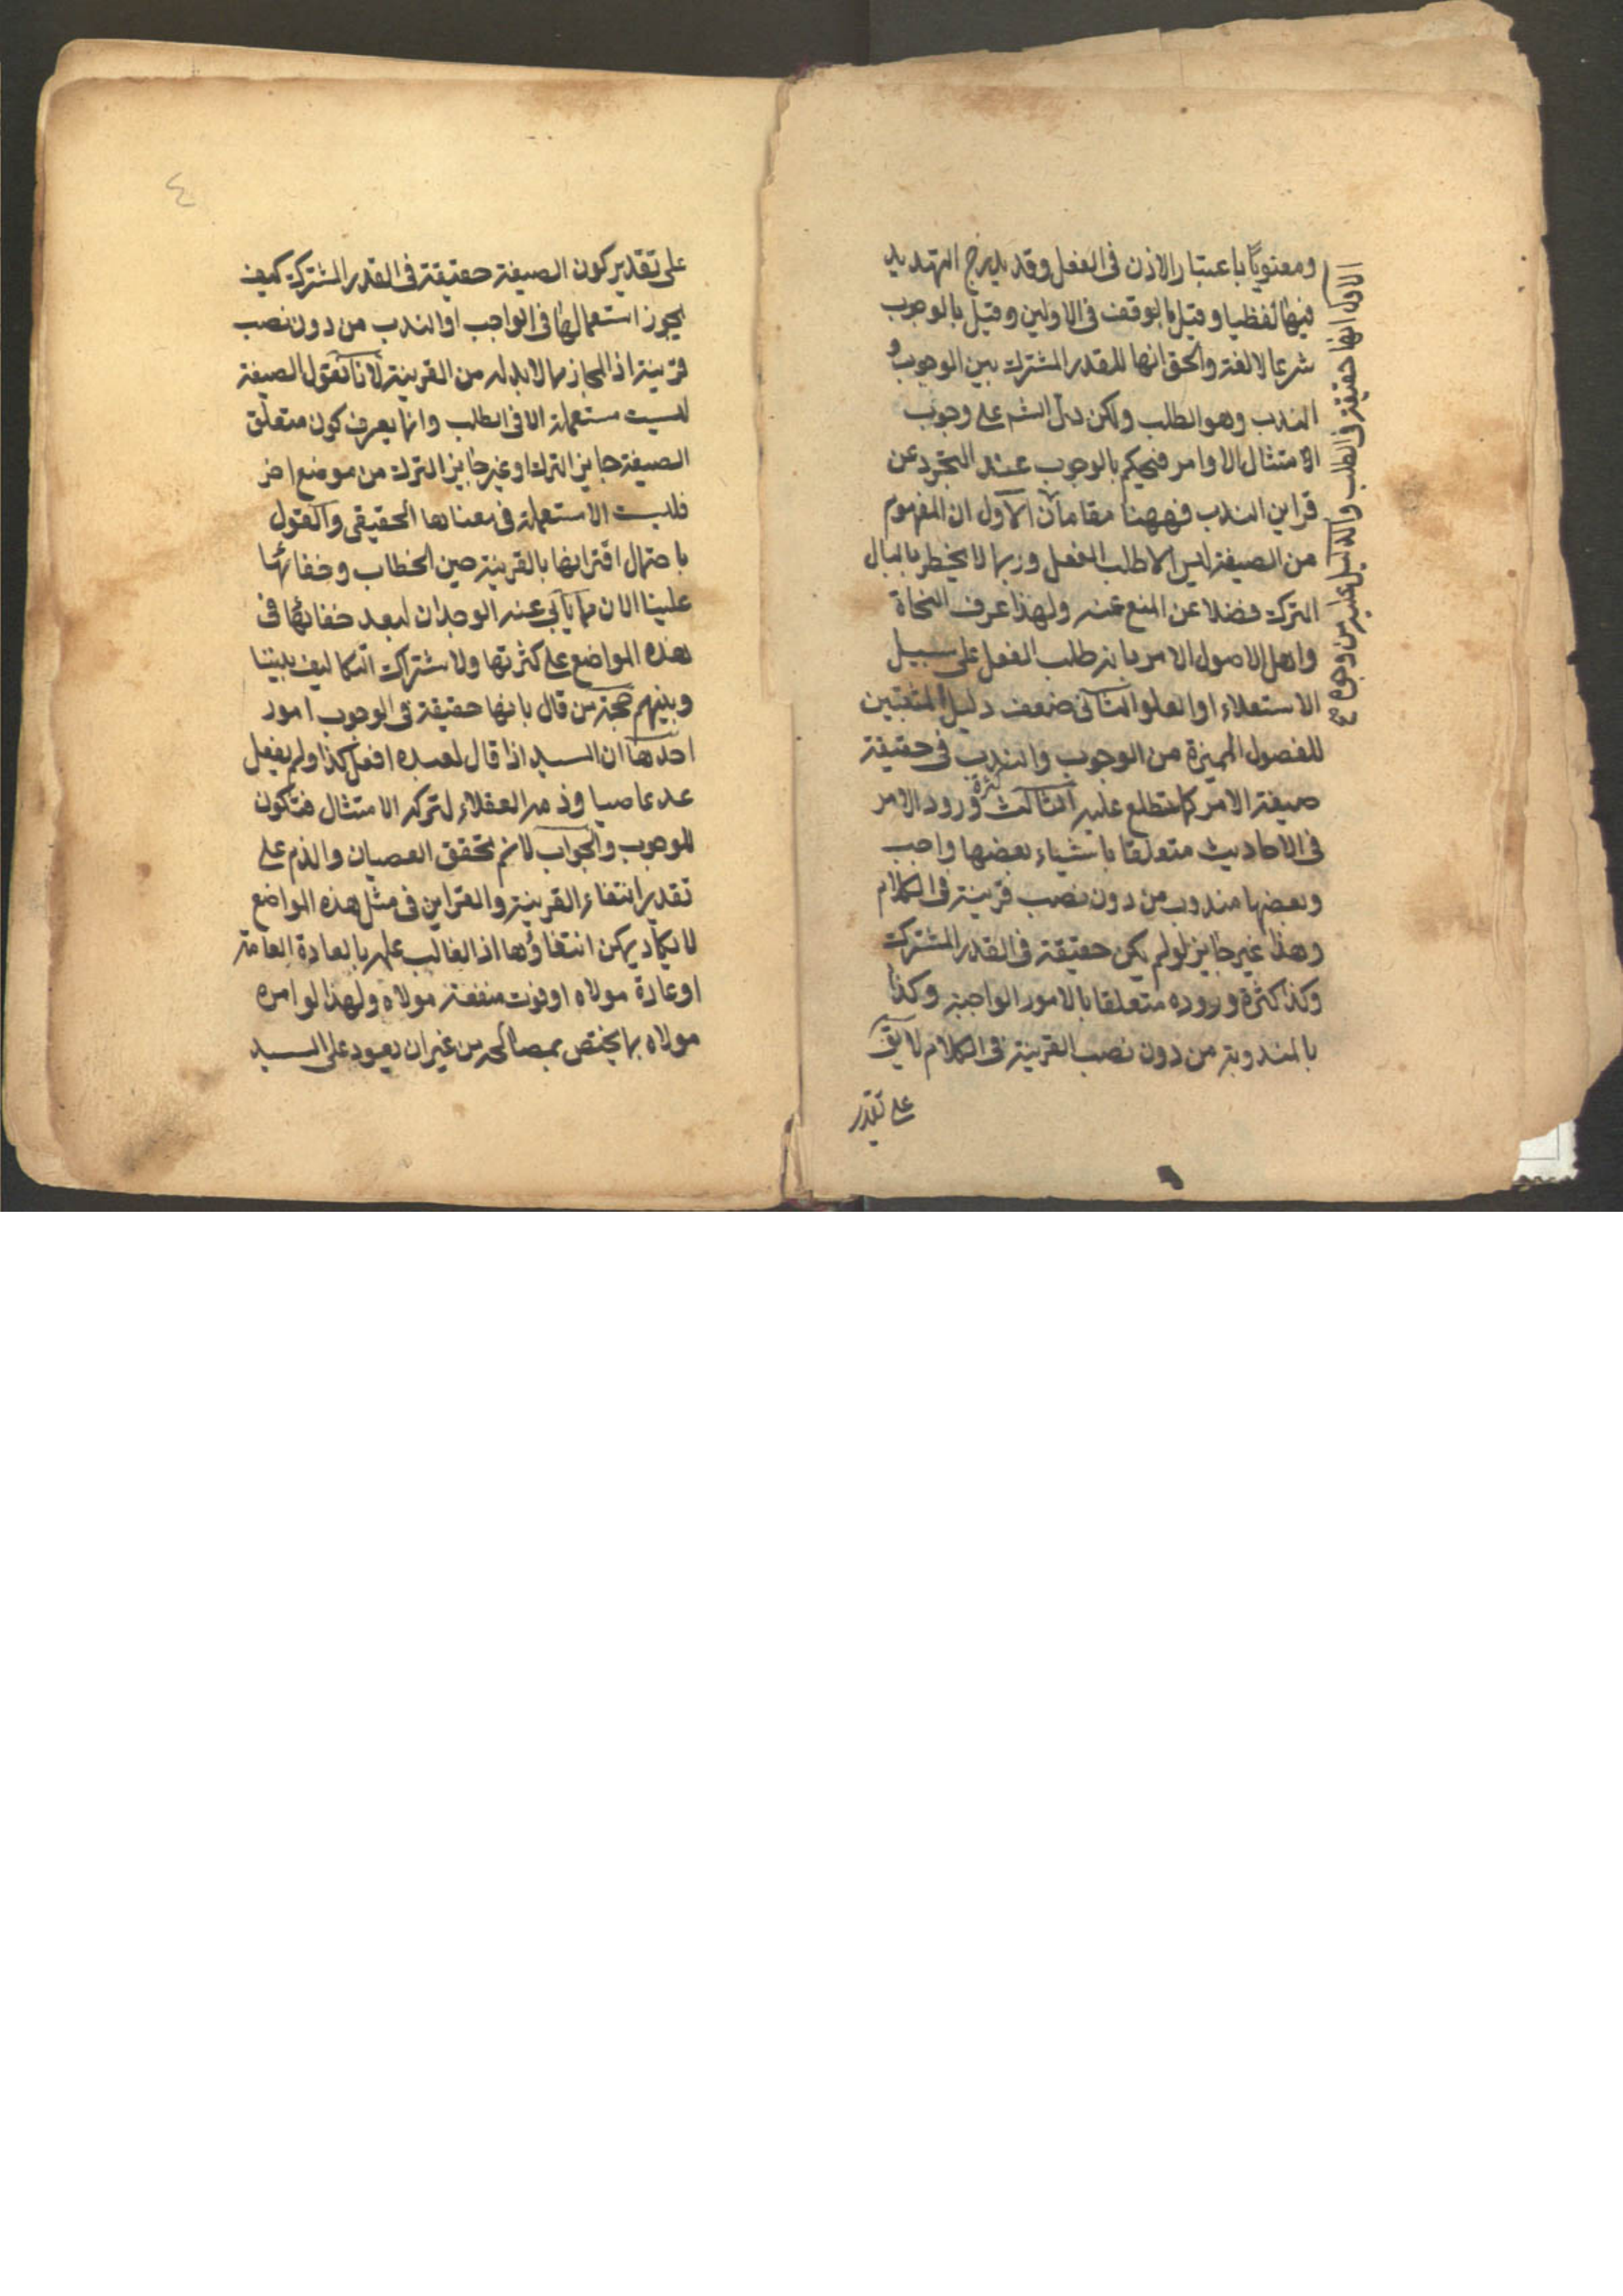 ومعنويا باعتبار الاذن فى الفعل وقد يدرج التهديد
فيها لفظيا وقيل بالوقف فى الاولين وقيل بالوجوب
شرعا لا لغة والحق انها للقدر المشترك بين الوجوب و
الندب وهو الطلب ولكن دل الشرع على وجوب
الامتثال بالاوامر فيحكم بالوجوب عند التجرد عن
قراين الندب فههنا مقامان الاول ان المفهوم
من الصيغة ليس الا طلب الفعل وربما لا يخطر بالبال
الترك فضلا عن المنع عنه ولهذا عرف النحاة
واهل الاصول الامر بانه طلب الفعل على سبيل
الاستعلاء او العلو الثانى ضعف دليل المثبتين
للفصول المميزة من الوجوب والندب فى حقيقة
صيغة الامر كما ستطلع عليه الثالث كثرة ورود الامر
فى الاحاديث متعلقا باشياء بعضها واجب
وبعضها مندوب من دون نصب قرينة فى الكلام
وهذا غير جايز لو لم يكن حقيقة فى القدر المشترك
وكذا كثرة وروده متعلقا بالامور الواجبة وكذا
بالمندوبة من دون نصب القرينة فى الكلام لا يق
على تقدير
الاول انها حقيقة فى الطلب والدليل عليه من وجوه صح
٤
على تقدير كون الصيغة حقيقة فى القدر المشترك كيف
يجوز استعمالها فى الواجب او الندب من دون نصب
قرينة اذ المجاز مما لا بد له من القرينة لانا نقول الصيغة
ليست مستعملة الا فى الطلب وانما يعرف كون متعلق
الصيغة جايز الترك او غير جايز الترك من موضع اخر
فليست الا مستعملة فى معناها الحقيقى والقول
باحتمال اقترانها بالقرينة حين الخطاب وخفائها
علينا الان مما يأبى عنه الوجدان لبعد خفائها فى
هذه المواضع على كثرتها ولاشتراك التكاليف بيننا
وبينهم حجة من قال بانها حقيقة فى الوجوب امور
احدها ان السيد اذا قال لعبده افعل كذا ولم يفعل
عد عاصيا وذمه العقلاء لتركه الامتثال فتكون
للوجوب والجواب لا نم تحقق العصيان والذم على
تقدير انتفاء القرينة والقراين فى مثل هذه المواضع
لا يكاد يمكن انتفاؤها اذ الغالب علمه بالعادة العامة
او عادة مولاه او فوت منفعة مولاه ولهذا لو امره
مولاه بما يختص بمصالحه من غير ان يعود على السيد